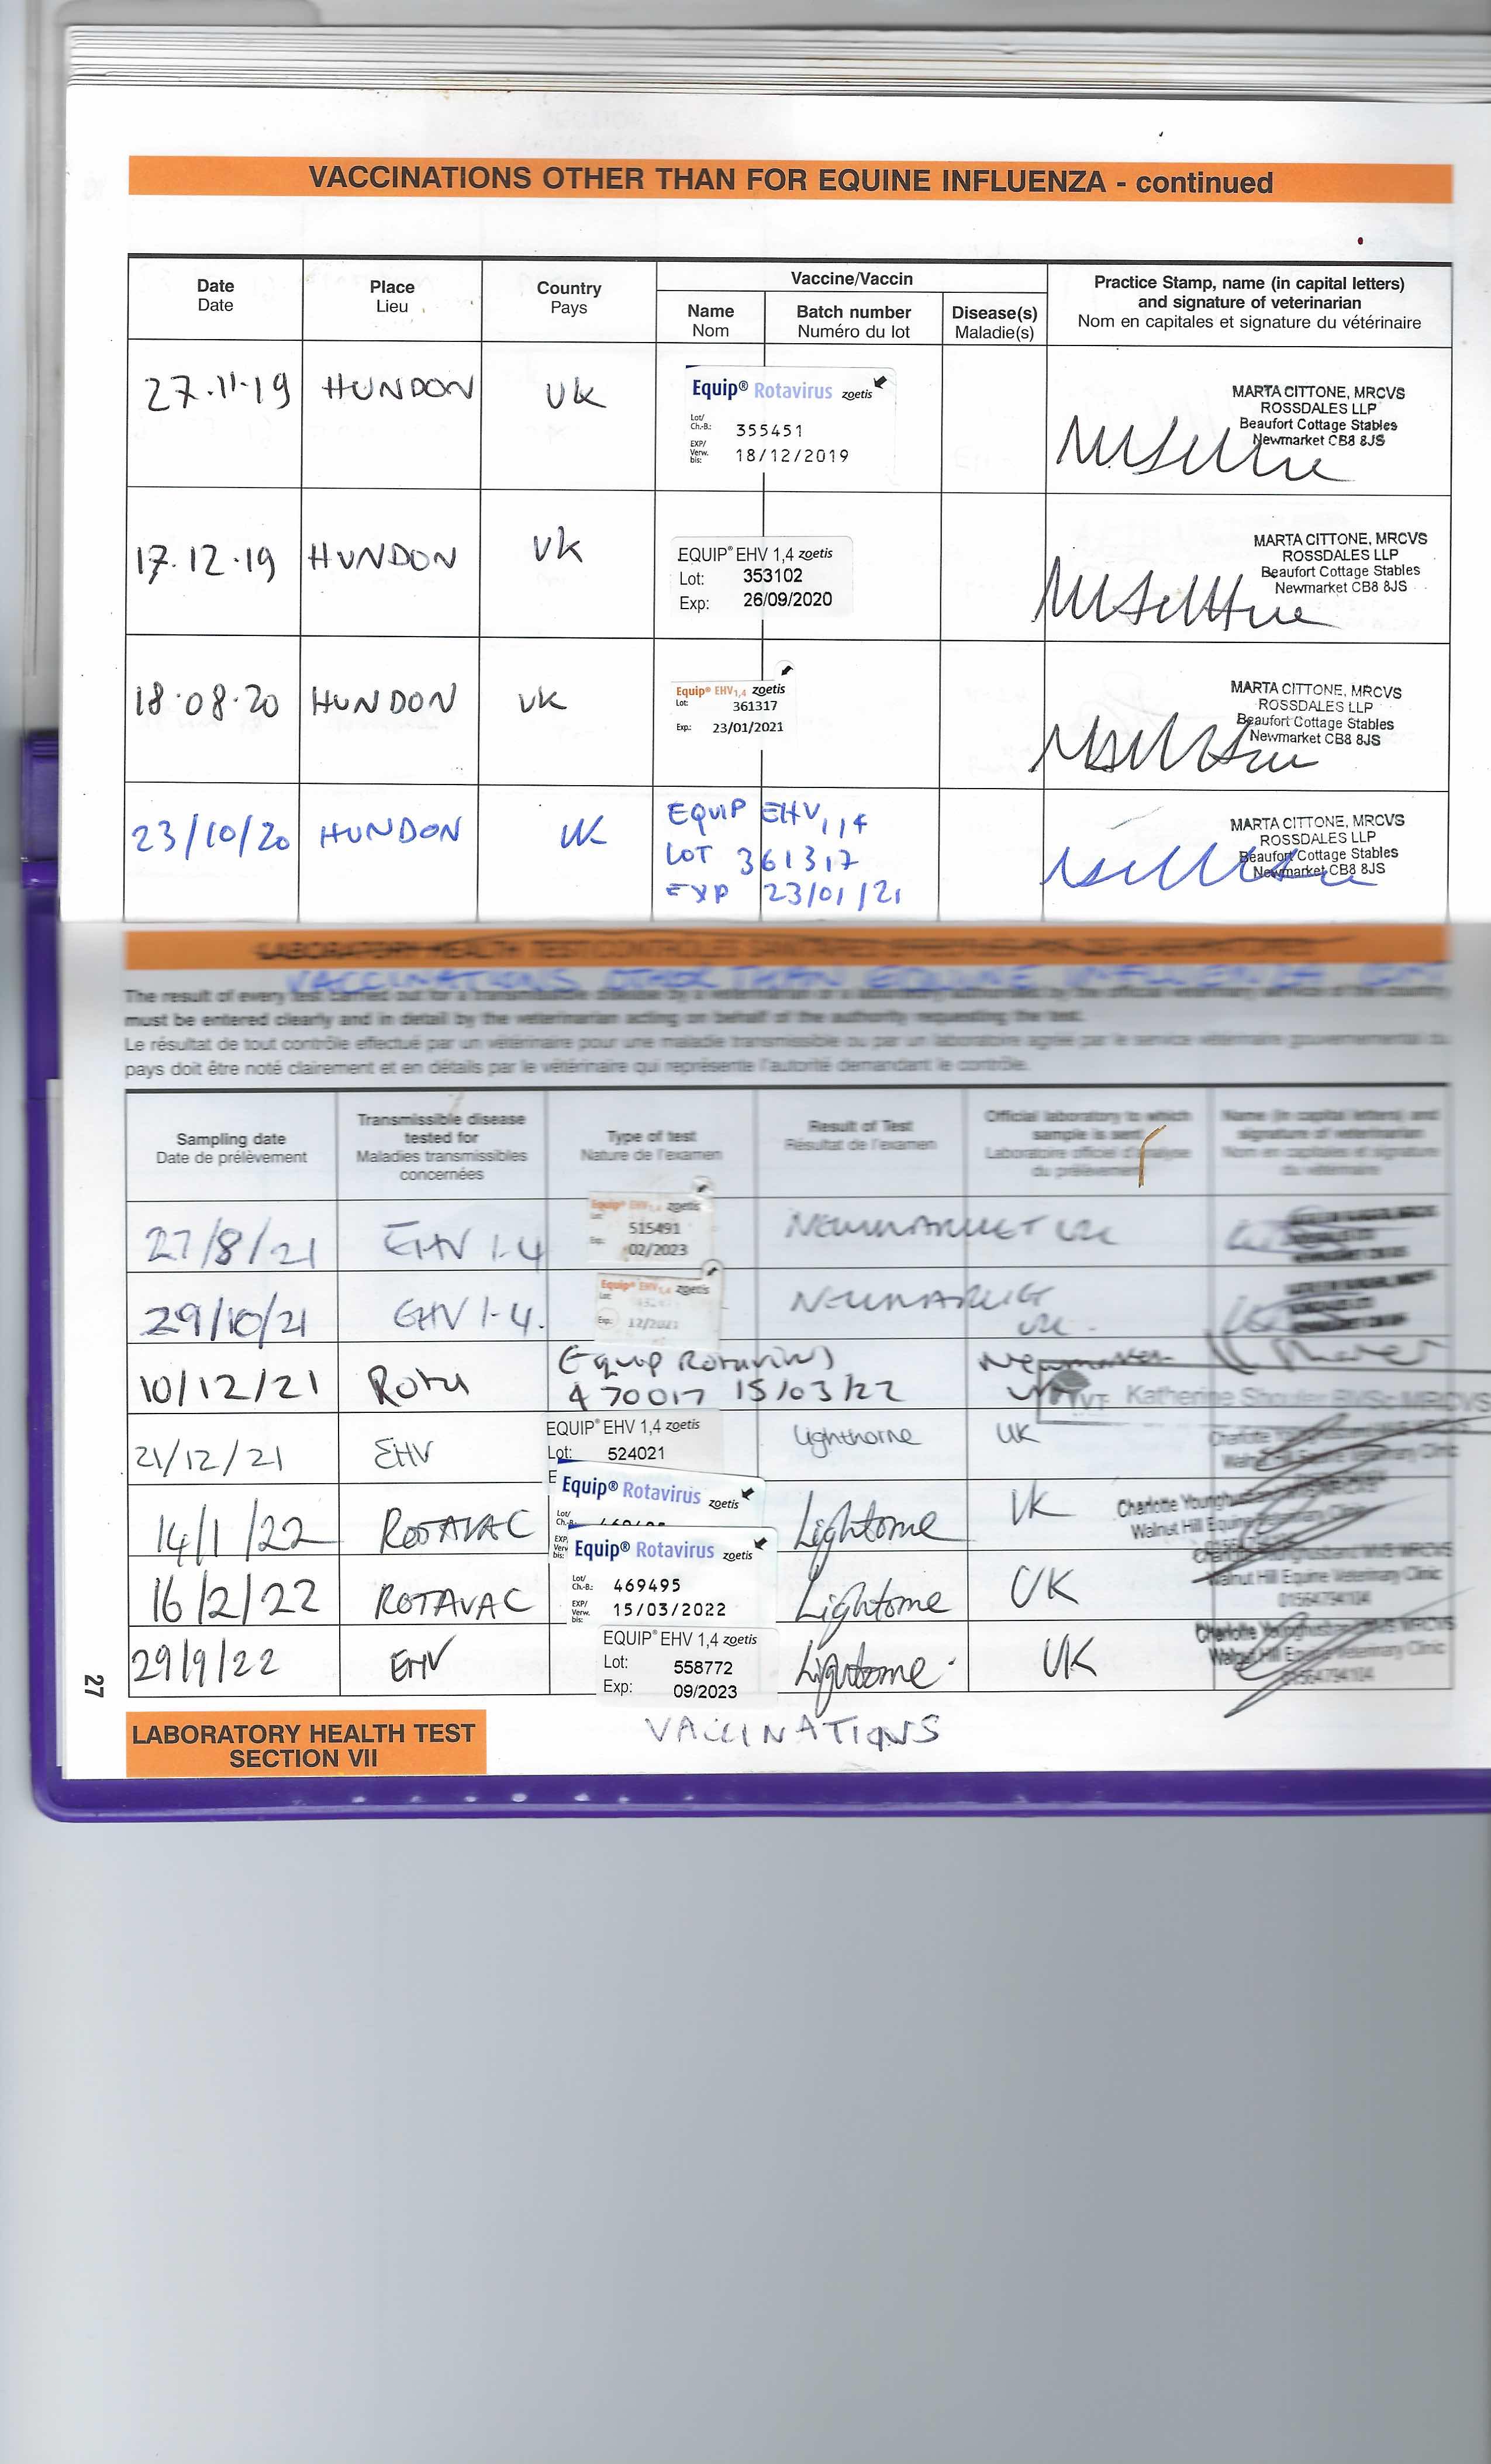 VACCINATIONS OTHER THAN FOR EQUINE INFLUENZA - continued
Date
Date
Place
Lieu
Country
Pays
Vaccine/Vaccin
Name
Nom
Batch number
Numéro du lot
Disease(s)
Maladie(s)
Practice Stamp, name (in capital letters)
and signature of veterinarian
Nom en capitales et signature du vétérinaire
27.11.19 HUNDON UK
Equip® Rotavirus zoetis
Lot/
Ch.-B.: 355451
EXP/
Verw.
bis: 18/12/2019
MARTA CITTONE, MRCVS
ROSSDALES LLP
Beaufort Cottage Stables
Newmarket CB8 8JS
17.12.19 HUNDON UK
EQUIP® EHV 1,4 zoetis
Lot: 353102
Exp: 26/09/2020
MARTA CITTONE, MRCVS
ROSSDALES LLP
Beaufort Cottage Stables
Newmarket CB8 8JS
18.08.20 HUNDON UK
Equip® EHV1,4 zoetis
Lot: 361317
Exp.: 23/01/2021
MARTA CITTONE, MRCVS
ROSSDALES LLP
Beaufort Cottage Stables
Newmarket CB8 8JS
23/10/20 HUNDON UK
EQUIP EHV1,4
LOT 361317
EXP 23/01/21
MARTA CITTONE, MRCVS
ROSSDALES LLP
Beaufort Cottage Stables
Newmarket CB8 8JS
LABORATORY HEALTH TEST/CONTRÔLES SANITAIRES
VACCINATIONS OTHER THAN EQUINE INFLUENZA
The result of every test carried out for a transmissible disease by a veterinarian or a laboratory authorised by the official veterinary service of the country
must be entered clearly and in detail by the veterinarian acting on behalf of the authority requesting the test.
Le résultat de tout contrôle effectué par un vétérinaire pour une maladie transmissible ou par un laboratoire agréé par le service vétérinaire gouvernemental du
pays doit être noté clairement et en détails par le vétérinaire qui représente l'autorité demandant le contrôle.
Sampling date
Date de prélèvement
Transmissible disease
tested for
Maladies transmissibles
concernées
Type of test
Nature de l'examen
Result of Test
Résultat de l'examen
Official laboratory to which
sample is sent
Laboratoire officiel d'analyse
du prélèvement
Name (in capital letters) and
signature of veterinarian
Nom en capitales et signature
du vétérinaire
27/8/21 EHV 1-4
Equip® EHV1,4 zoetis
Lot: 515491
Exp.: 02/2023
NEWMARKET UK
29/10/21 EHV 1-4.
Equip® EHV1,4 zoetis
Lot:
Exp.: 12/2021
NEWMARKET
UK.
10/12/21 Rota
Equip Rotavirus
470017 15/03/22
Newmarket
UK
VT Katherine BVSc MRCVS
21/12/21 EHV
EQUIP® EHV 1,4 zoetis
Lot: 524021
E
Lighthorne UK
Walnut Hill Equine Veterinary Clinic
14/1/22 ROTAVAC
Equip® Rotavirus zoetis
Lot/
Ch.-B.:
EXP/
Lightorne UK
Charlotte Younghusband
Walnut Hill Equine Veterinary Clinic
16/2/22 ROTAVAC
Equip® Rotavirus zoetis
Lot/
Ch.-B.: 469495
EXP/
Verw.
bis: 15/03/2022
Lightorne UK
Walnut Hill Equine Veterinary Clinic
01564794104
29/9/22 EHV
EQUIP® EHV 1,4 zoetis
Lot: 558772
Exp: 09/2023
Lightorne. UK
Walnut Hill Equine Veterinary Clinic
01564794104
27
LABORATORY HEALTH TEST
SECTION VII
VACCINATIONS